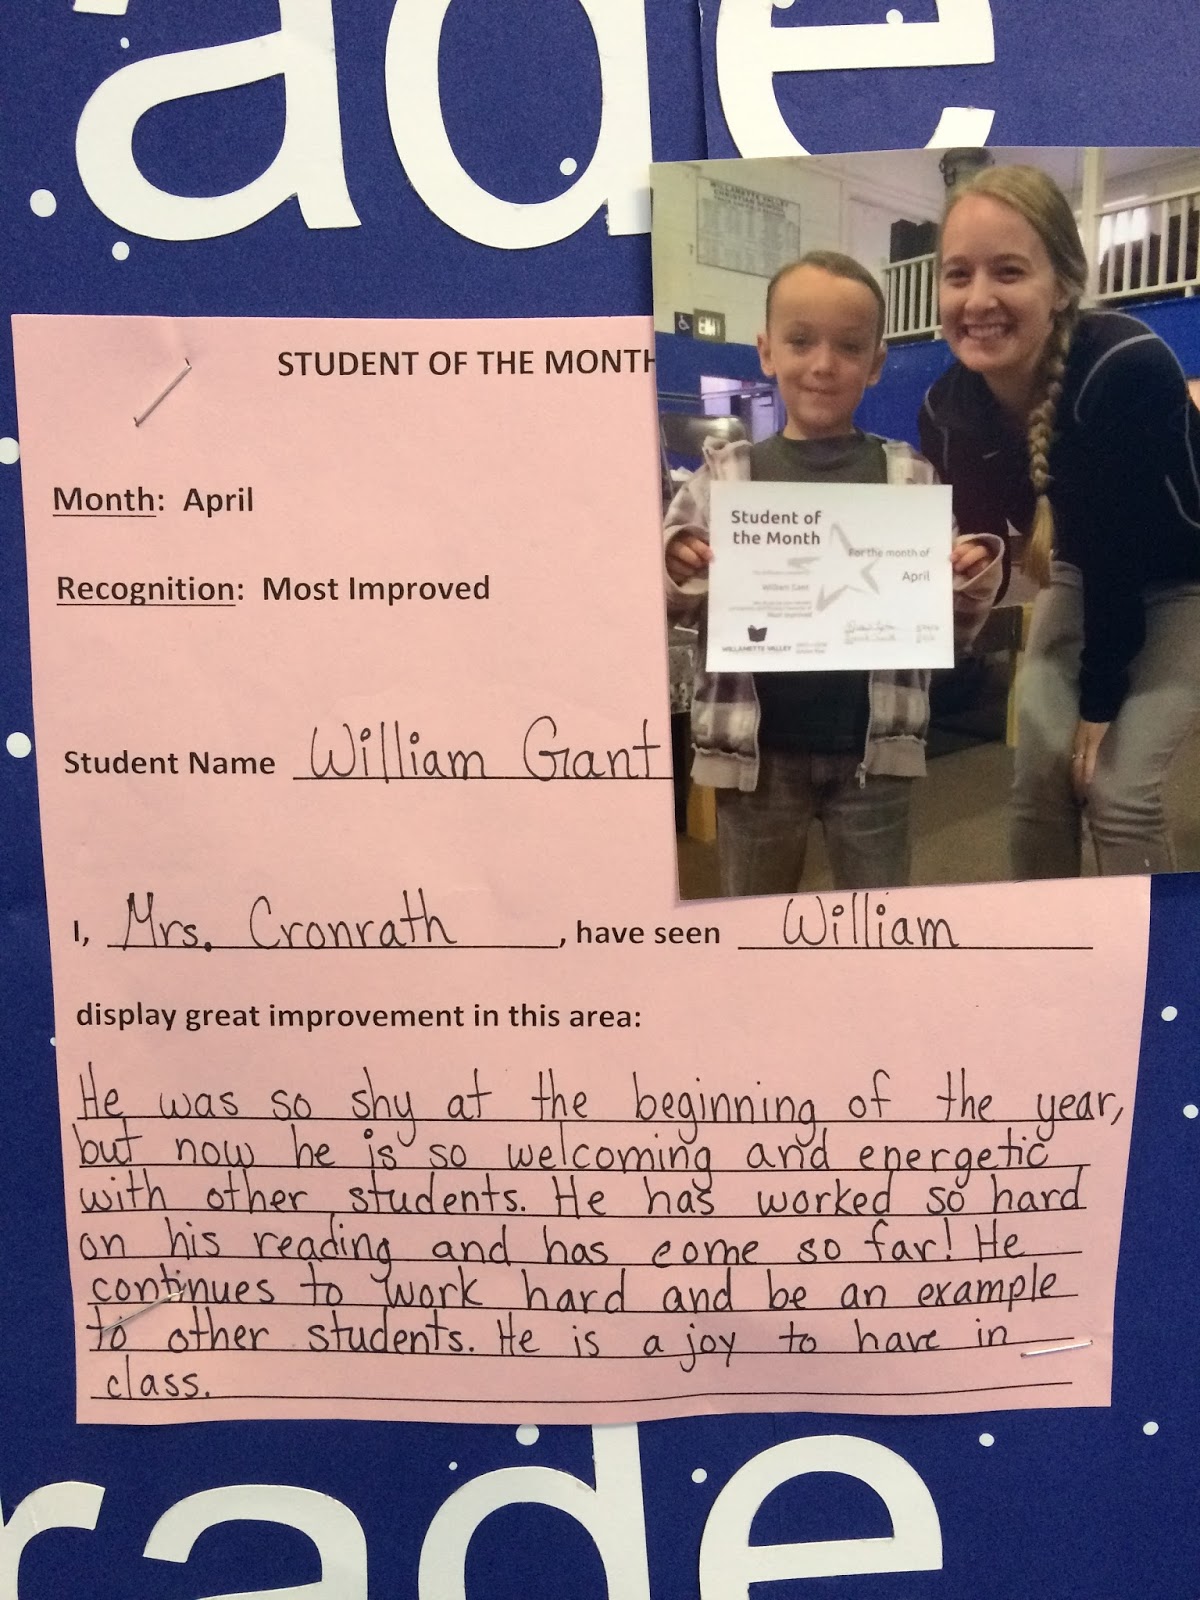 ade
WILLAMETTE VALLEY
CHRISTIAN SCHOOL
EXIT
STUDENT OF THE MONTH
Month: April
Recognition: Most Improved
Student of
the Month
For the month of
April
William Gant
Most Improved
WILLAMETTE VALLEY
Student Name William Gant
I, Mrs. Cronrath, have seen William
display great improvement in this area:
He was so shy at the beginning of the year,
but now he is so welcoming and energetic
with other students. He has worked so hard
on his reading and has come so far! He
continues to work hard and be an example
to other students. He is a joy to have in
class.
rade